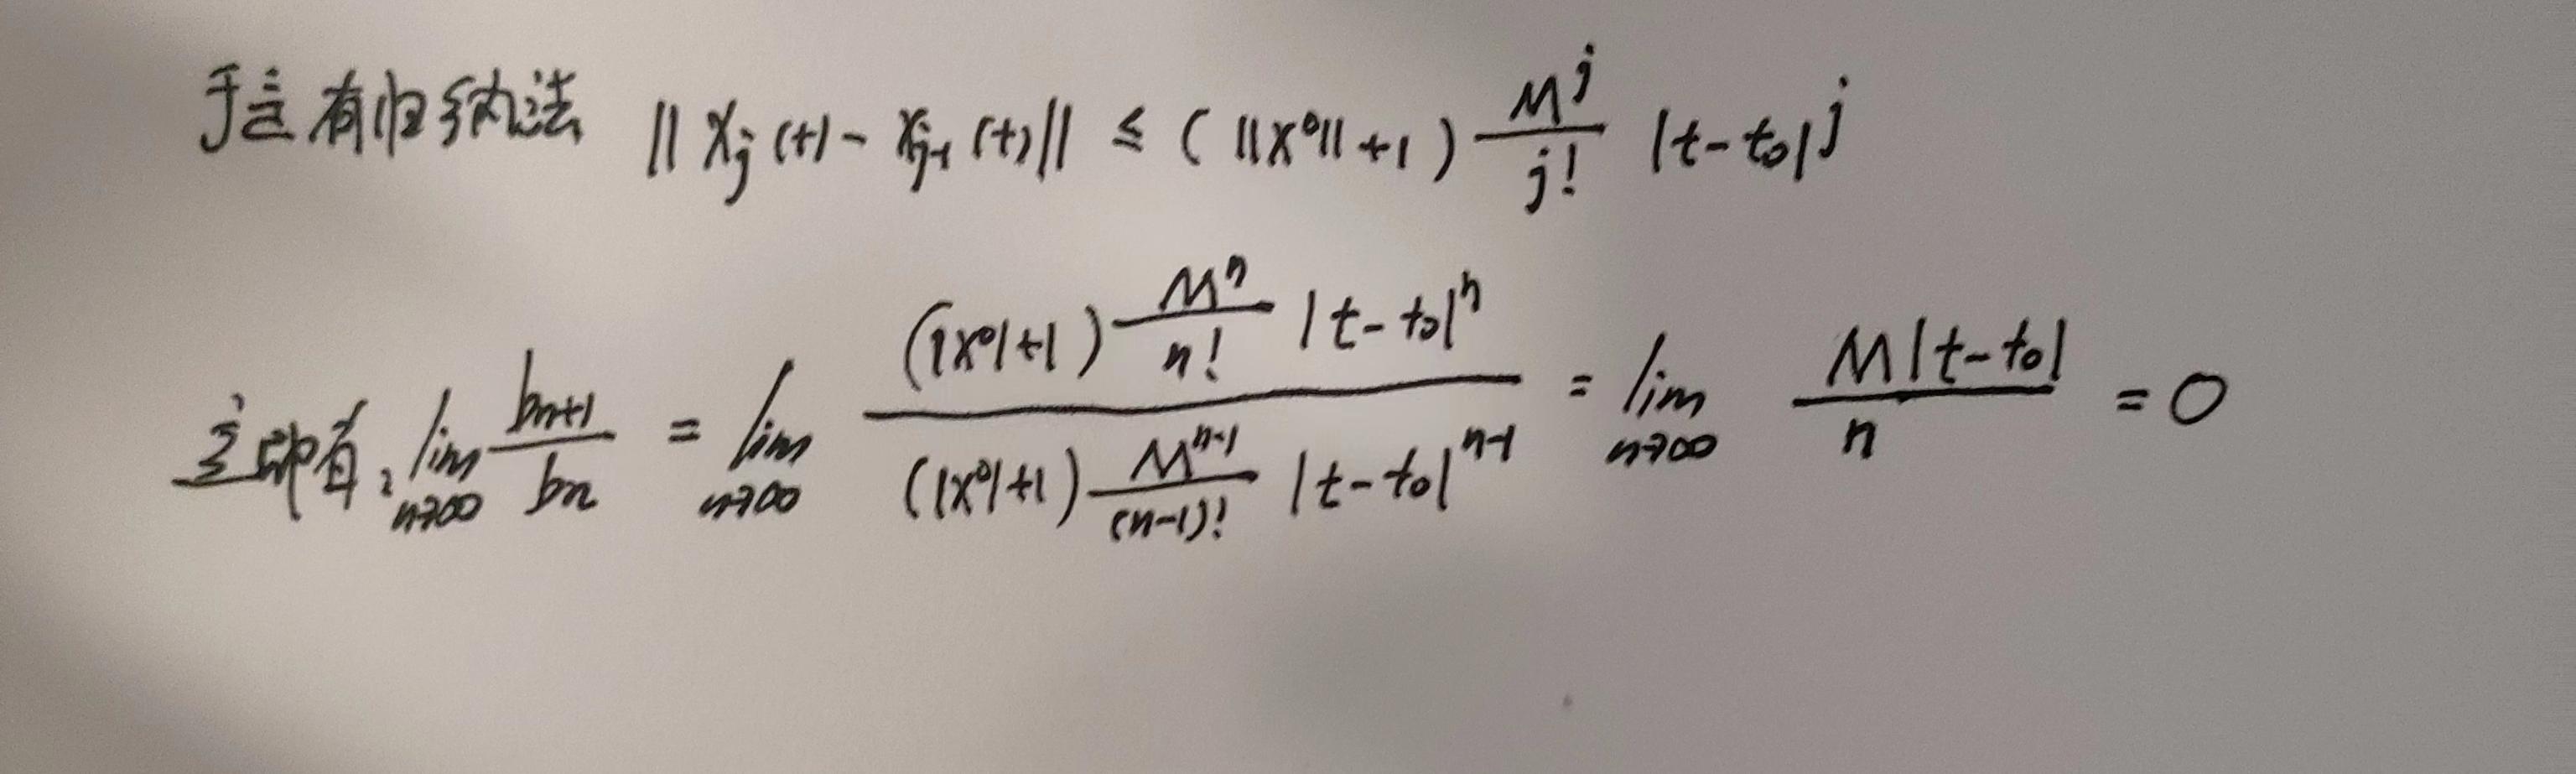 有归纳法 ‖x_j(t) - x_{j-1}(t)‖ ≤ (‖x⁰‖+1) \frac{M^j}{j!} |t-t₀|^j
有, \lim_{n→∞} \frac{b_{n+1}}{b_n} = \lim_{n→∞} \frac{(|x⁰|+1) \frac{M^n}{n!} |t-t₀|^n}{(|x⁰|+1) \frac{M^{n-1}}{(n-1)!} |t-t₀|^{n-1}} = \lim_{n→∞} \frac{M|t-t₀|}{n} = 0